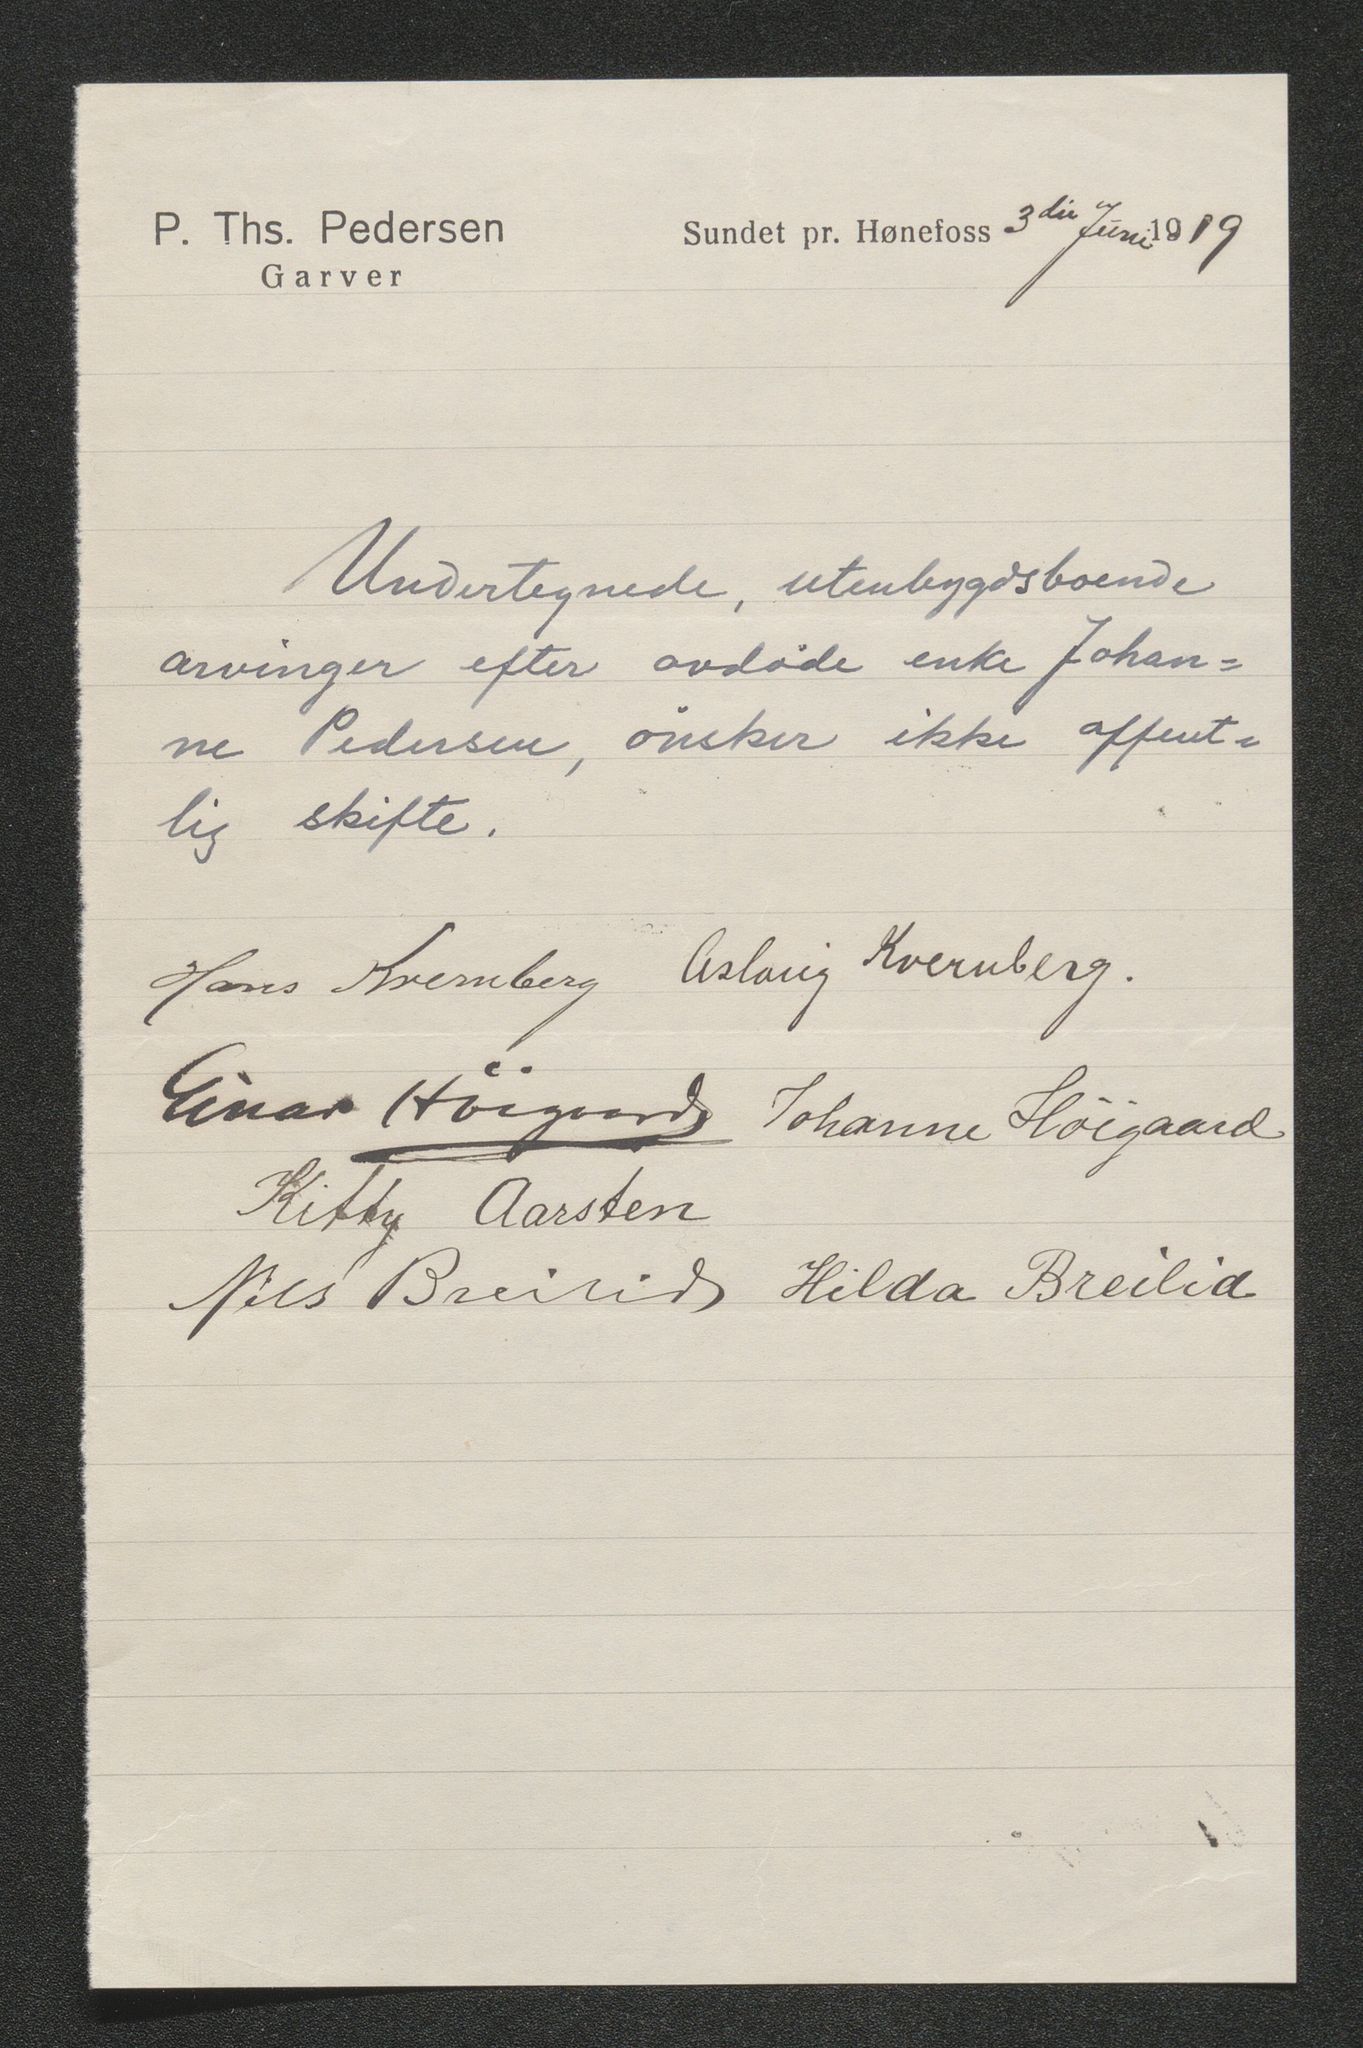 P. Ths. Pedersen
Garver
Sundet pr. Hønefoss 3die Juni 1919
Undertegnede, utenbygdsboende
arvinger efter avdöde enke Johan=
ne Pedersen, önsker ikke offent=
lig skifte.
Hans Kvernberg Aslaug Kvernberg.
Einar Höigaard Johanne Höigaard
Kitty Aarsten
Nils Breilid Hilda Breilid